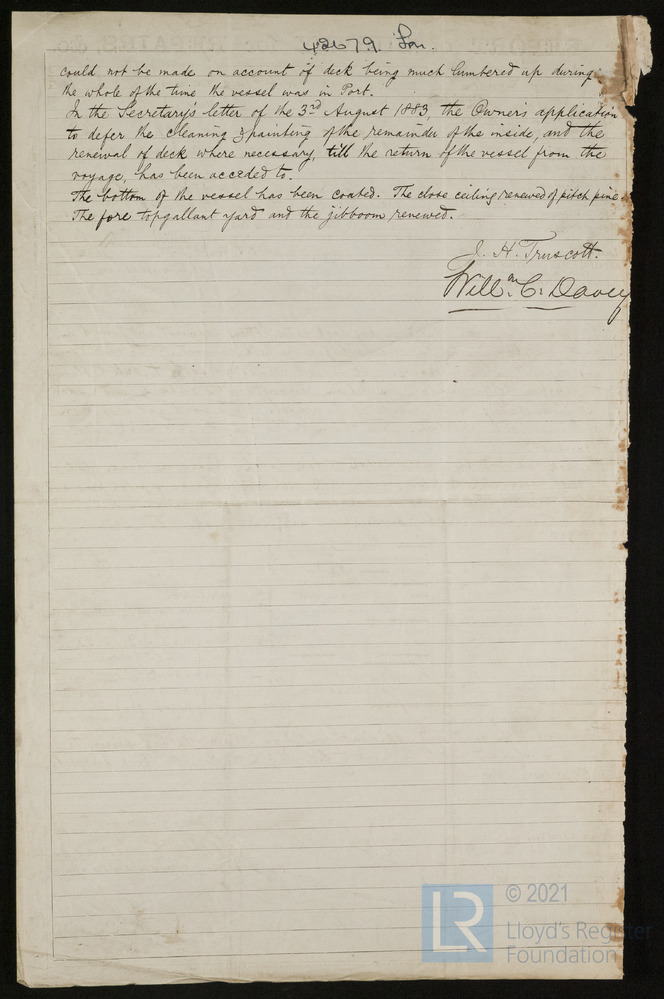 42679 Lon.
could not be made on account of deck being much lumbered up during
the whole of the time the vessel was in Port.
In the Secretary's letter of the 3rd August 1883, the Owner's application
to defer the cleaning & painting of the remainder of the inside, and the
renewal of deck where necessary, till the return of the vessel from the
voyage, has been acceded to.
The bottom of the vessel has been coated. The close ceiling renewed of pitch pine.
The fore topgallant yard and the jibboom renewed.
J. H. Truscott.
Willm. C. Davey
LR
© 2021
Lloyd's Register
Foundation